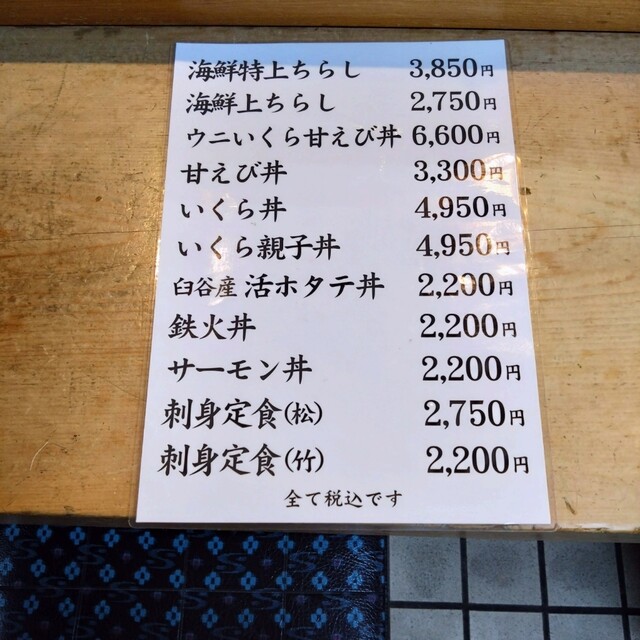 海鮮特上ちらし 3,850円
海鮮上ちらし 2,750円
ウニいくら甘えび丼 6,600円
甘えび丼 3,300円
いくら丼 4,950円
いくら親子丼 4,950円
臼谷産 活ホタテ丼 2,200円
鉄火丼 2,200円
サーモン丼 2,200円
刺身定食(松) 2,750円
刺身定食(竹) 2,200円
全て税込です